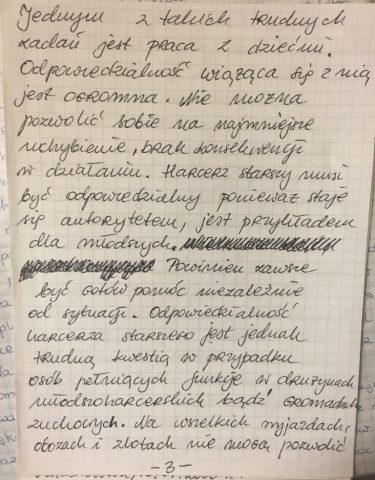 Jednym z takich trudnych
zadań jest praca z dziećmi.
Odpowiedzialność wiążąca się z nią
jest ogromna. Nie można
pozwolić sobie na najmniejsze
uchybienie, brak konsekwencji
w działaniu. Harcerz starszy musi
być odpowiedzialny ponieważ staje
się autorytetem, jest przykładem
dla młodszych.
Powinien zawsze
być gotów pomóc niezależnie
od sytuacji. Odpowiedzialność
harcerza starszego jest jednak
trudną kwestią w przypadku
osób pełniących funkcje w drużynach
młodszoharcerskich bądź gromadach
zuchowych. Na wszelkich wyjazdach,
obozach i zlotach nie mogą pozwolić
- 3 -